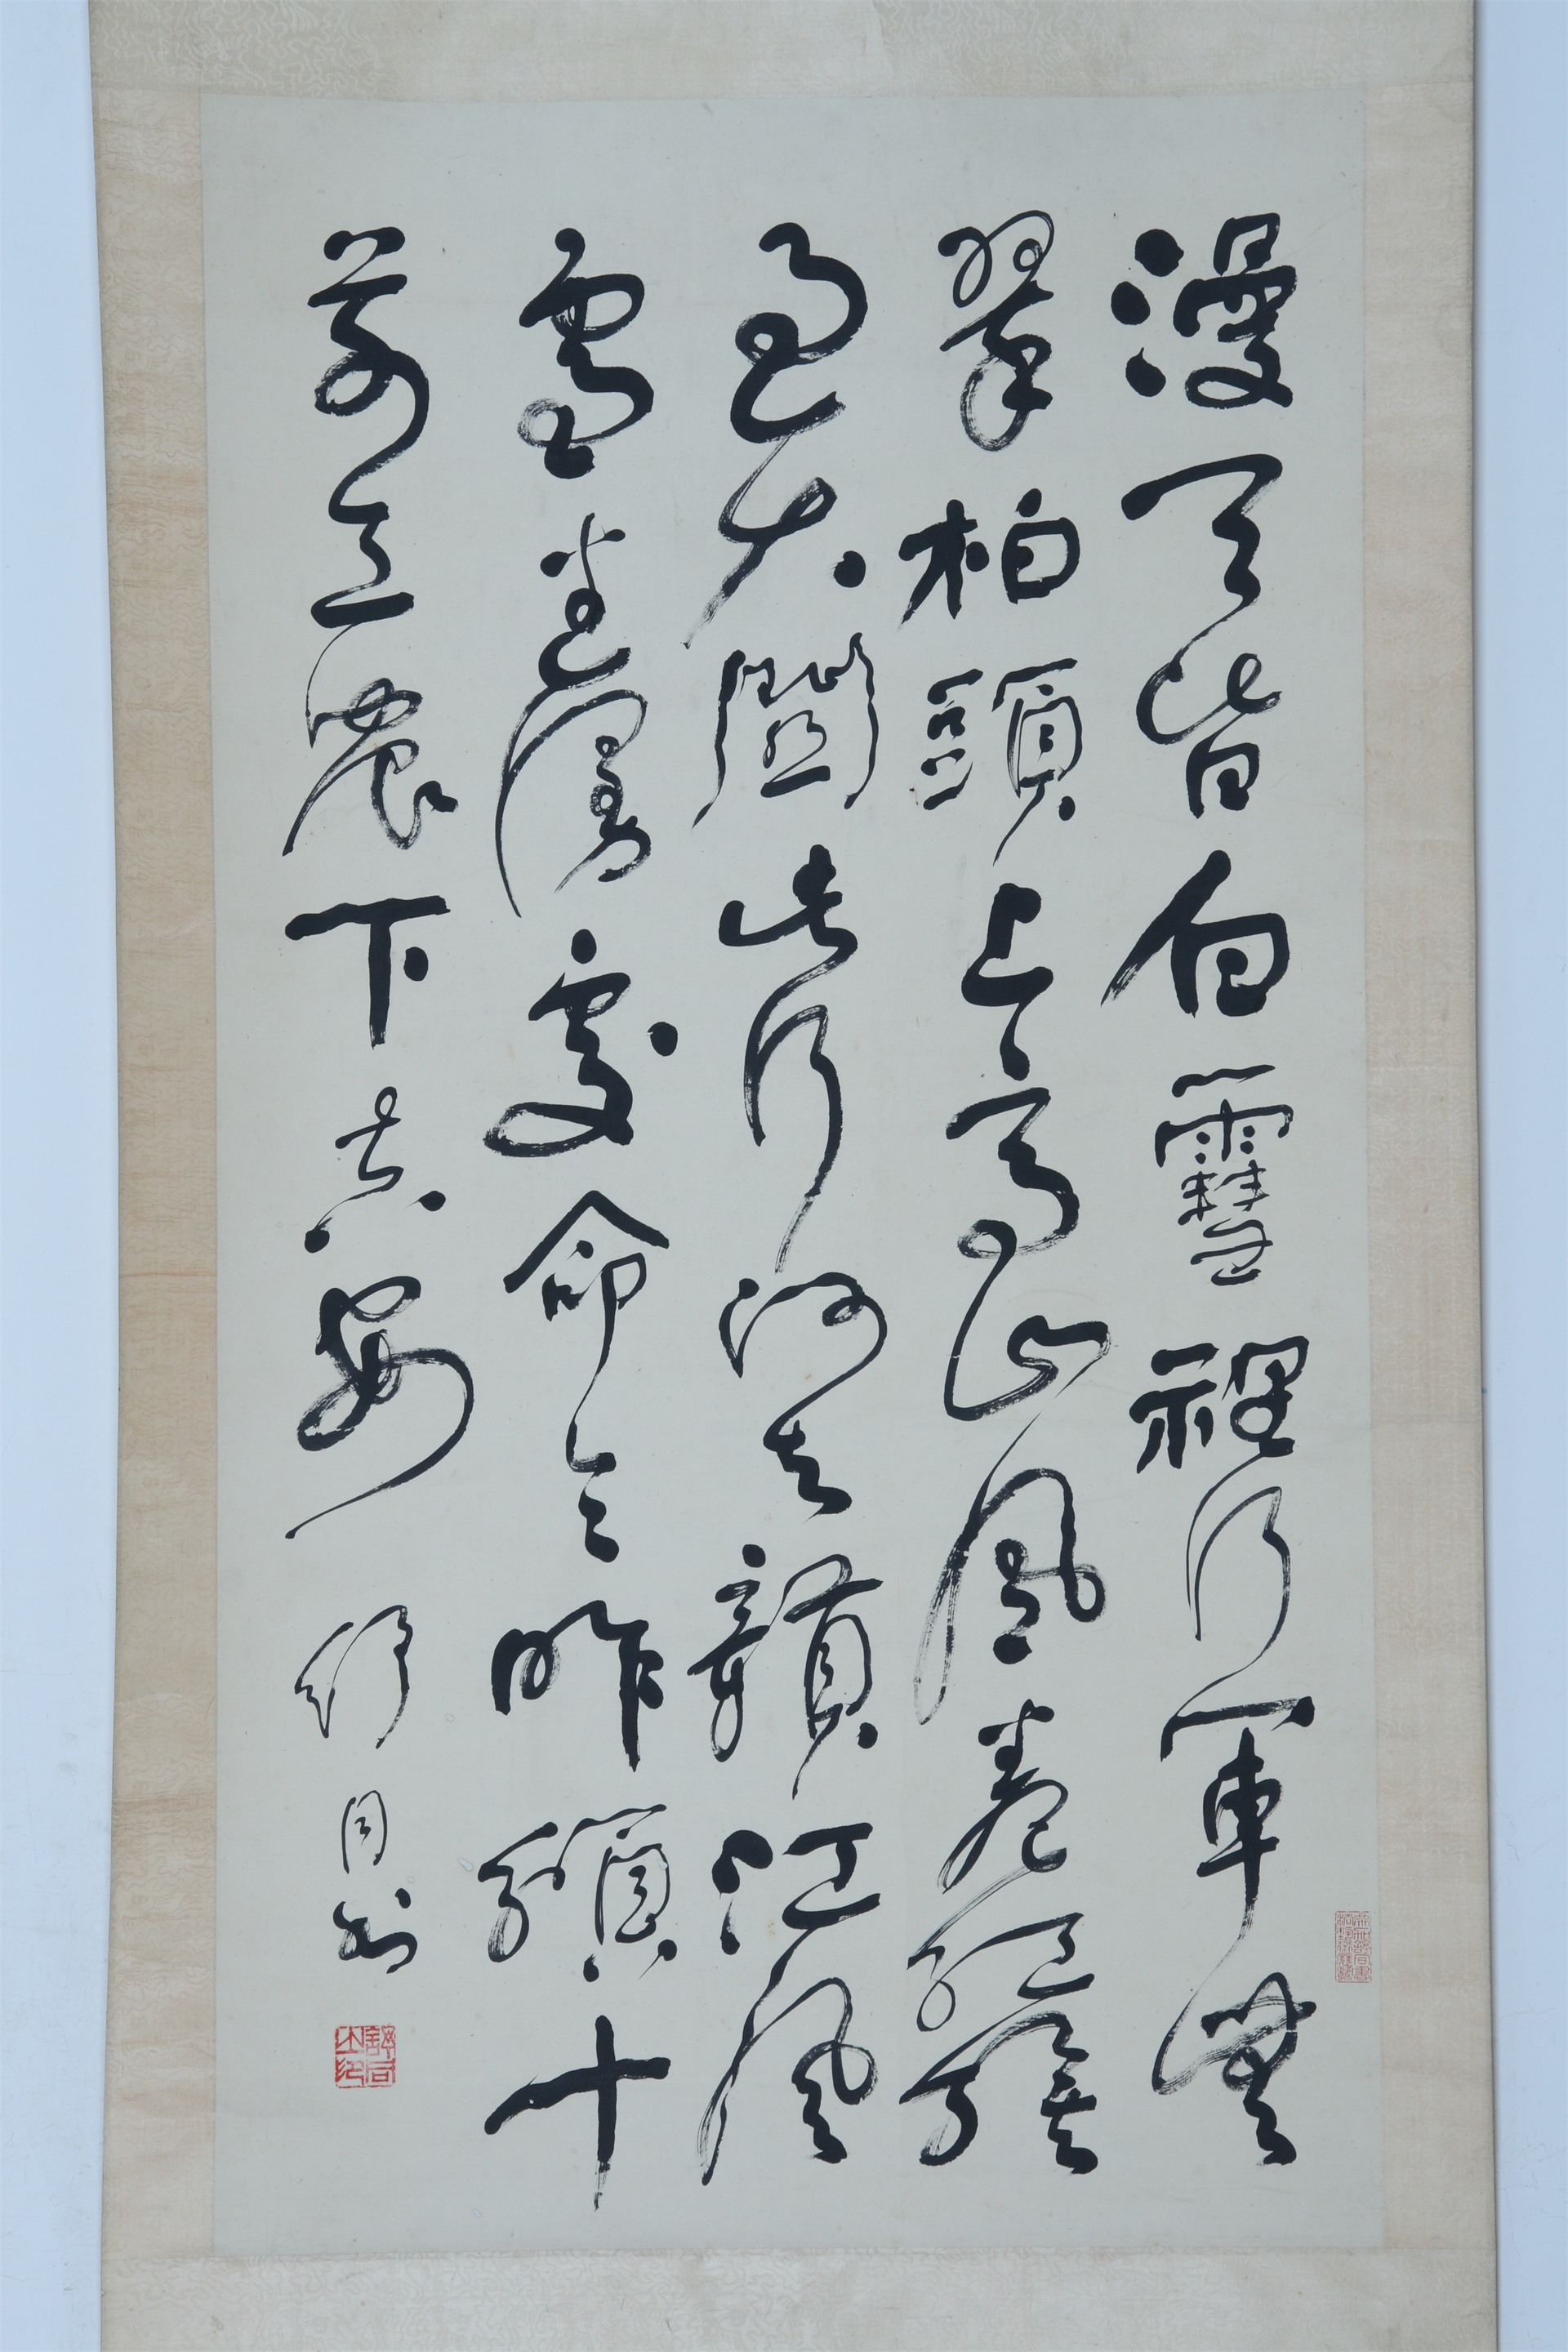 漫天皆白雪裡行軍無
翠柏頭上高山風卷紅旗
過大關此行何去贛江風
雪迷漫處命令昨頒十
萬工農下吉安 舒同书
舒同之印